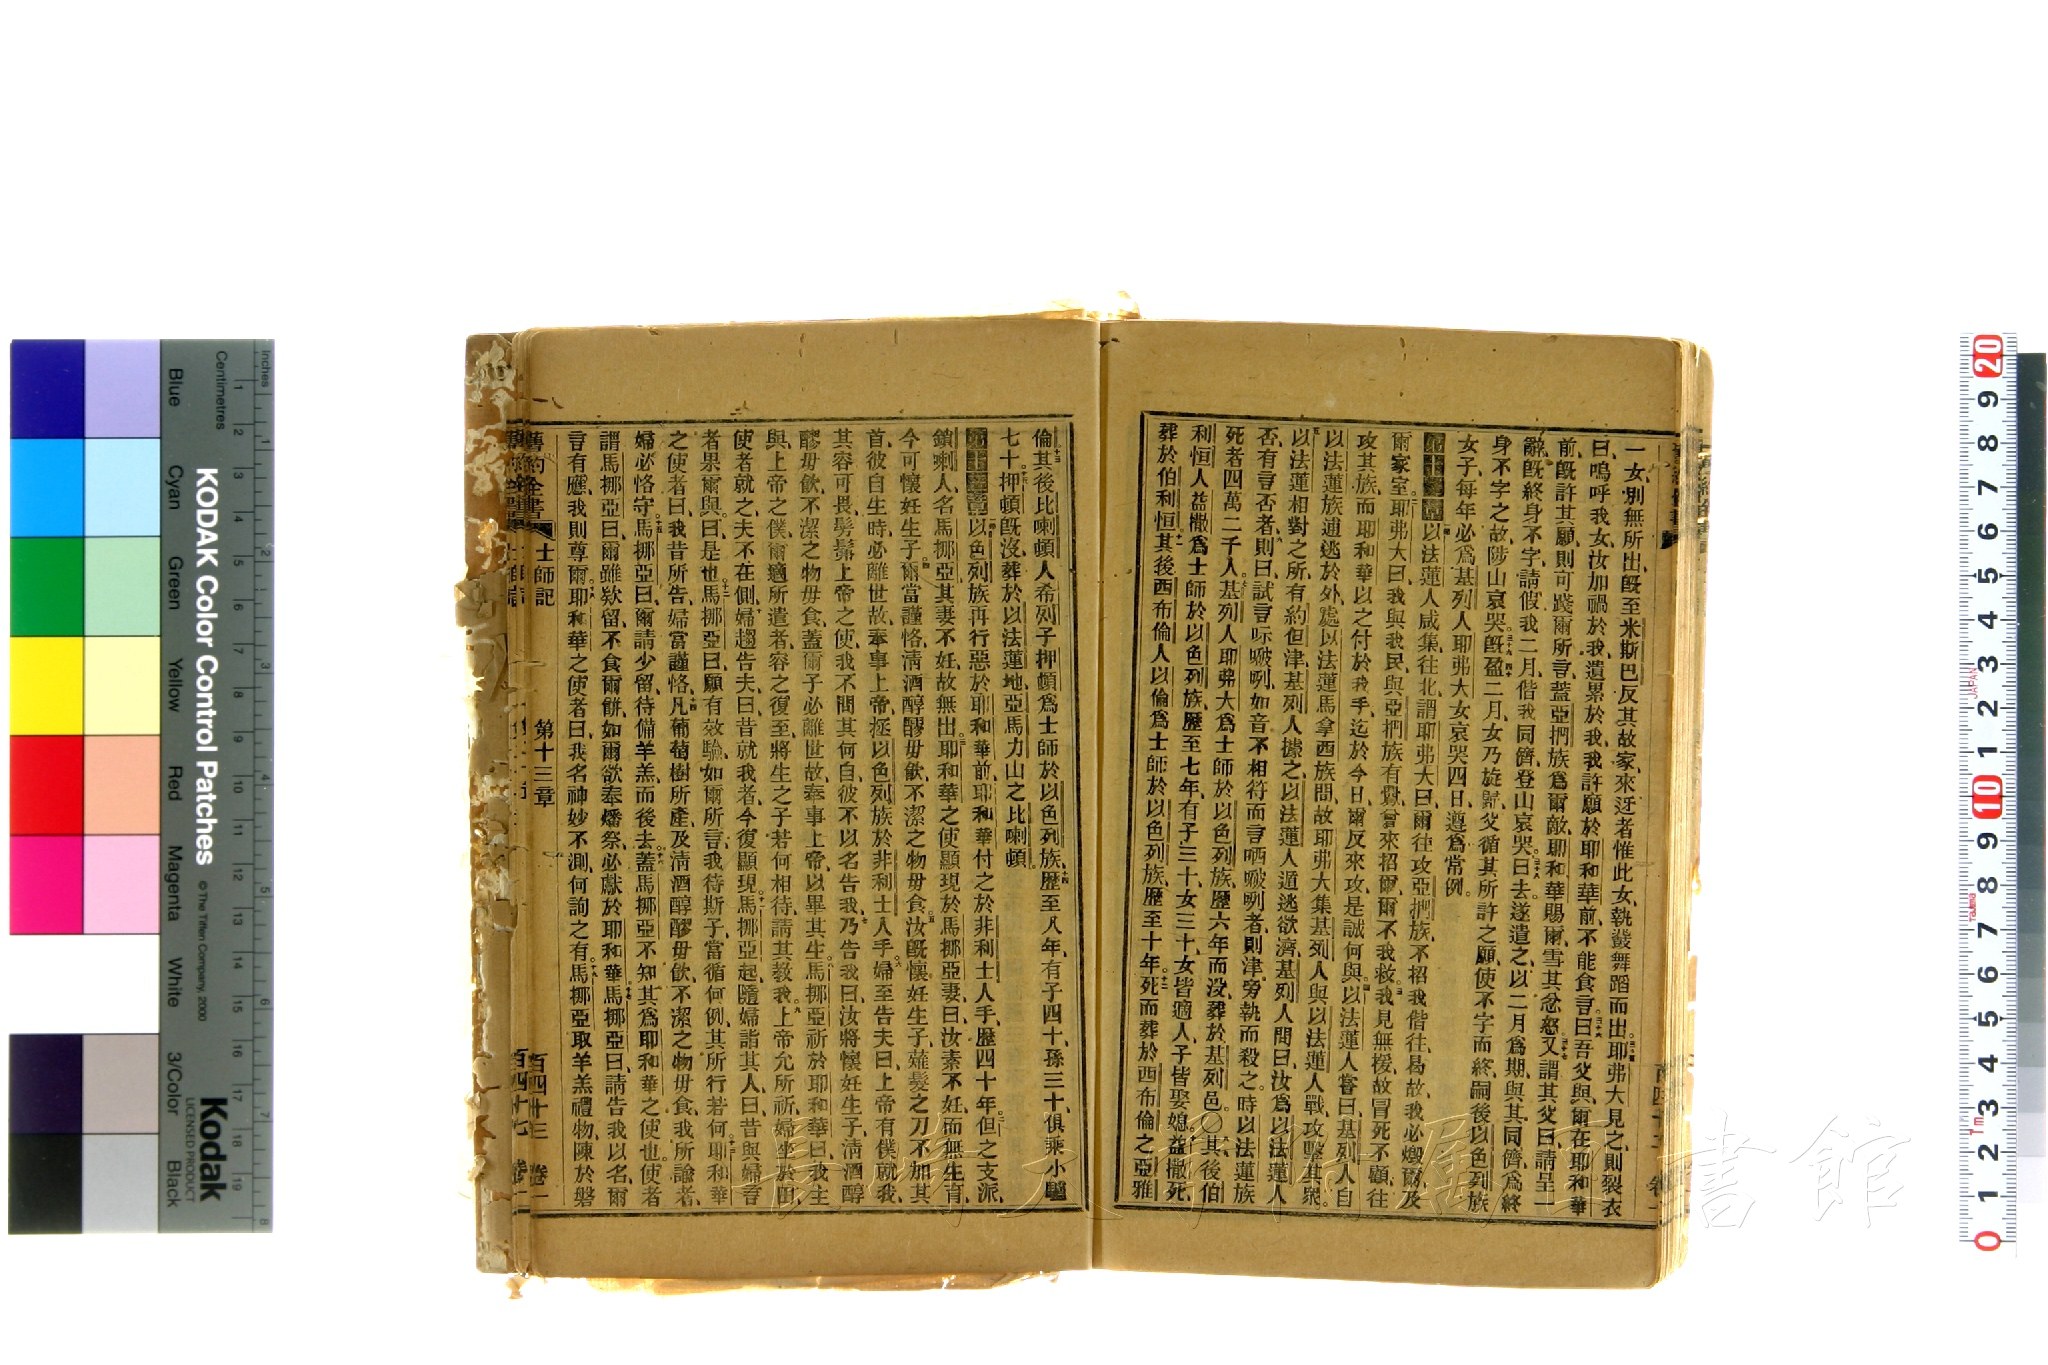 一女別無所出旣至米斯巴反其故家來迓者惟此女執鼗舞蹈而出耶弗大見之則裂衣
曰嗚呼我女汝加禍於我遺累於我我許願於耶和華前不能食言曰吾父與爾在耶和華
前旣許其願則可踐爾所言蓋亞捫族爲爾敵耶和華賜爾雪其忿怒又謂其父曰請呈一
辭旣終身不字請假我二月偕我同儕登山哀哭曰去遂遣之以二月爲期與其同儕爲終
身不字之故陟山哀哭旣盈二月女乃旋歸父循其所許之願使不字而終嗣後以色列族
女子每年必爲基列人耶弗大女哀哭四日遵爲常例
第十二章 以法蓮人咸集往北謂耶弗大曰爾往攻亞捫族不招我偕往曷故我必燬爾及
爾家室耶弗大曰我與我民與亞捫族有釁曾來招爾爾不我救我見無援故冒死不顧往
攻其族而耶和華以之付於我手迄於今日爾反來攻是誠何與以法蓮人嘗曰基列人自
以法蓮族逋逃於外處以法蓮馬拿西族間故耶弗大集基列人與以法蓮人戰攻擊其衆
以法蓮相對之所有約但津基列人據之以法蓮人遁逃欲濟基列人問曰汝爲以法蓮人
否有言否者則曰試言啋嘙咧如音不相符而言哂嘙咧者則津旁執而殺之時以法蓮族
死者四萬二千人基列人耶弗大爲士師於以色列族歷六年而没葬於基列邑〇其後伯
利恒人益撒爲士師於以色列族歷至七年有子三十女三十女皆適人子皆娶媳益撒死
葬於伯利恒其後西布倫人以倫爲士師於以色列族歷至十年死而葬於西布倫之亞雅
倫其後比喇頓人希列子押頓爲士師於以色列族歷至八年有子四十孫三十俱乘小驢
七十押頓旣沒葬於以法蓮地亞馬力山之比喇頓
第十三章 以色列族再行惡於耶和華前耶和華付之於非利士人手歷四十年但之支派
鎖喇人名馬挪亞其妻不妊故無出耶和華之使顯現於馬挪亞妻曰汝素不妊而無生育
今可懷妊生子爾當謹恪淸酒醇醪毋飲不潔之物毋食汝旣懷妊生子薙髮之刀不加其
首彼自生時必離世故奉事上帝拯以色列族於非利士人手婦至告夫曰上帝有僕就我
其容可畏髣髴上帝之使我不問其何自彼不以名告我乃告我曰汝將懷妊生子淸酒醇
醪毋飲不潔之物毋食蓋爾子必離世故奉事上帝以畢其生馬挪亞祈於耶和華曰我主
與上帝之僕爾適所遣者容之復至將生之子若何相待請其敎我上帝允所祈婦坐於田
使者就之夫不在側婦趨告夫曰昔就我者今復顯現馬挪亞起隨婦詣其人曰昔與婦言
者果爾與曰是也馬挪亞曰願有效驗如爾所言我待斯子當循何例其所行若何耶和華
之使者曰我昔所告婦當謹恪凡葡萄樹所產及淸酒醇醪毋飲不潔之物毋食我所諭者
婦必恪守馬挪亞曰爾請少留待備羊羔而後去蓋馬挪亞不知其爲耶和華之使也使者
謂馬挪亞曰爾雖欵留不食爾餅如爾欲奉燔祭必獻於耶和華馬挪亞曰請告我以名爾
言有應我則尊爾耶和華之使者曰我名神妙不測何詢之有馬挪亞取羊羔禮物陳於磐
舊約全書 士師記 第十三章 百四十三 卷一
百四十七 卷一
KODAK Color Control Patches
© The Tiffen Company, 2000
Kodak
LICENSED PRODUCT
Inches
Centimetres
Blue
Cyan
Green
Yellow
Red
Magenta
White
3/Color
Black
JAPAN